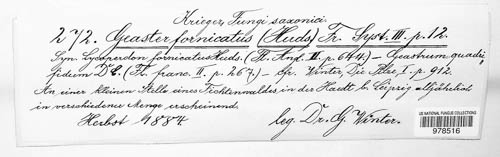 Krieger, Fungi saxonici.
272. Geaster fornicatus (Huds) Fr. Syst. III. p. 12.
Syn. Lycoperdon fornicatus Huds. (Fl. Angl. II. p. 644.) — Geastrum quadri-
fidum DC. (Fl. franc. II. p. 267.) — Cfr. Winter, Die Pilze, I. p. 912.
An einer kleinen Stelle eines Fichtenwaldes in der Harth b. Leipzig alljährlich
in verschiedener Menge erscheinend.
Herbst 1884 leg. Dr. G. Winter.
US NATIONAL FUNGUS COLLECTIONS
978516